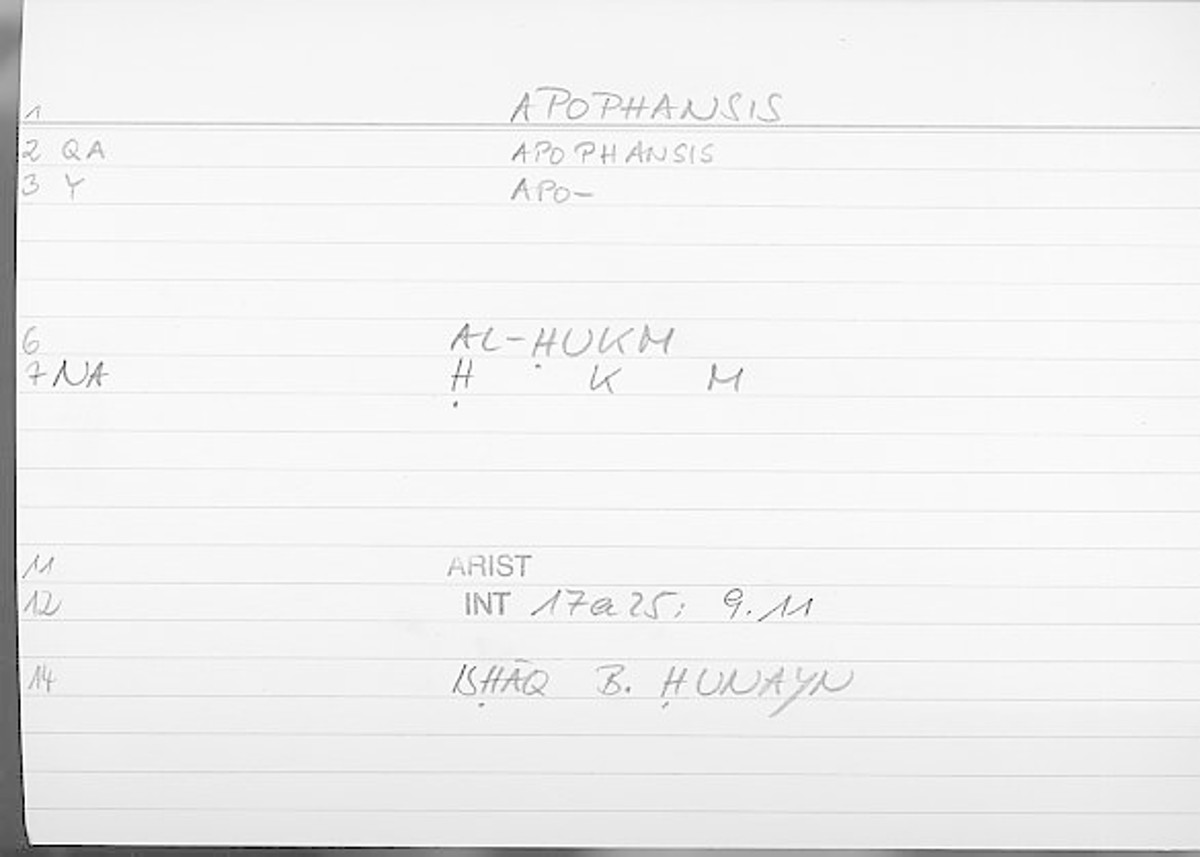 1 APOPHANSIS
2 QA APOPHANSIS
3 Y APO-
6 AL-ḤUKM
7 NA Ḥ K M
11 ARIST
12 INT 17a25; 9.11
14 ISḤĀQ B. ḤUNAYN